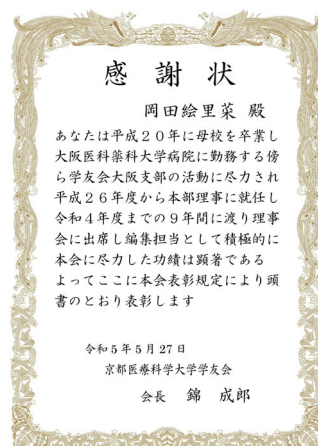 感謝状
岡田絵里菜 殿
あなたは平成20年に母校を卒業し
大阪医科薬科大学病院に勤務する傍
ら学友会大阪支部の活動に尽力され
平成26年度から本部理事に就任し
令和4年度までの9年間に渡り理事
会に出席し編集担当として積極的に
本会に尽力した功績は顕著である
よってここに本会表彰規定により頭
書のとおり表彰します
令和5年5月27日
京都医療科学大学学友会
会長 錦 成郎